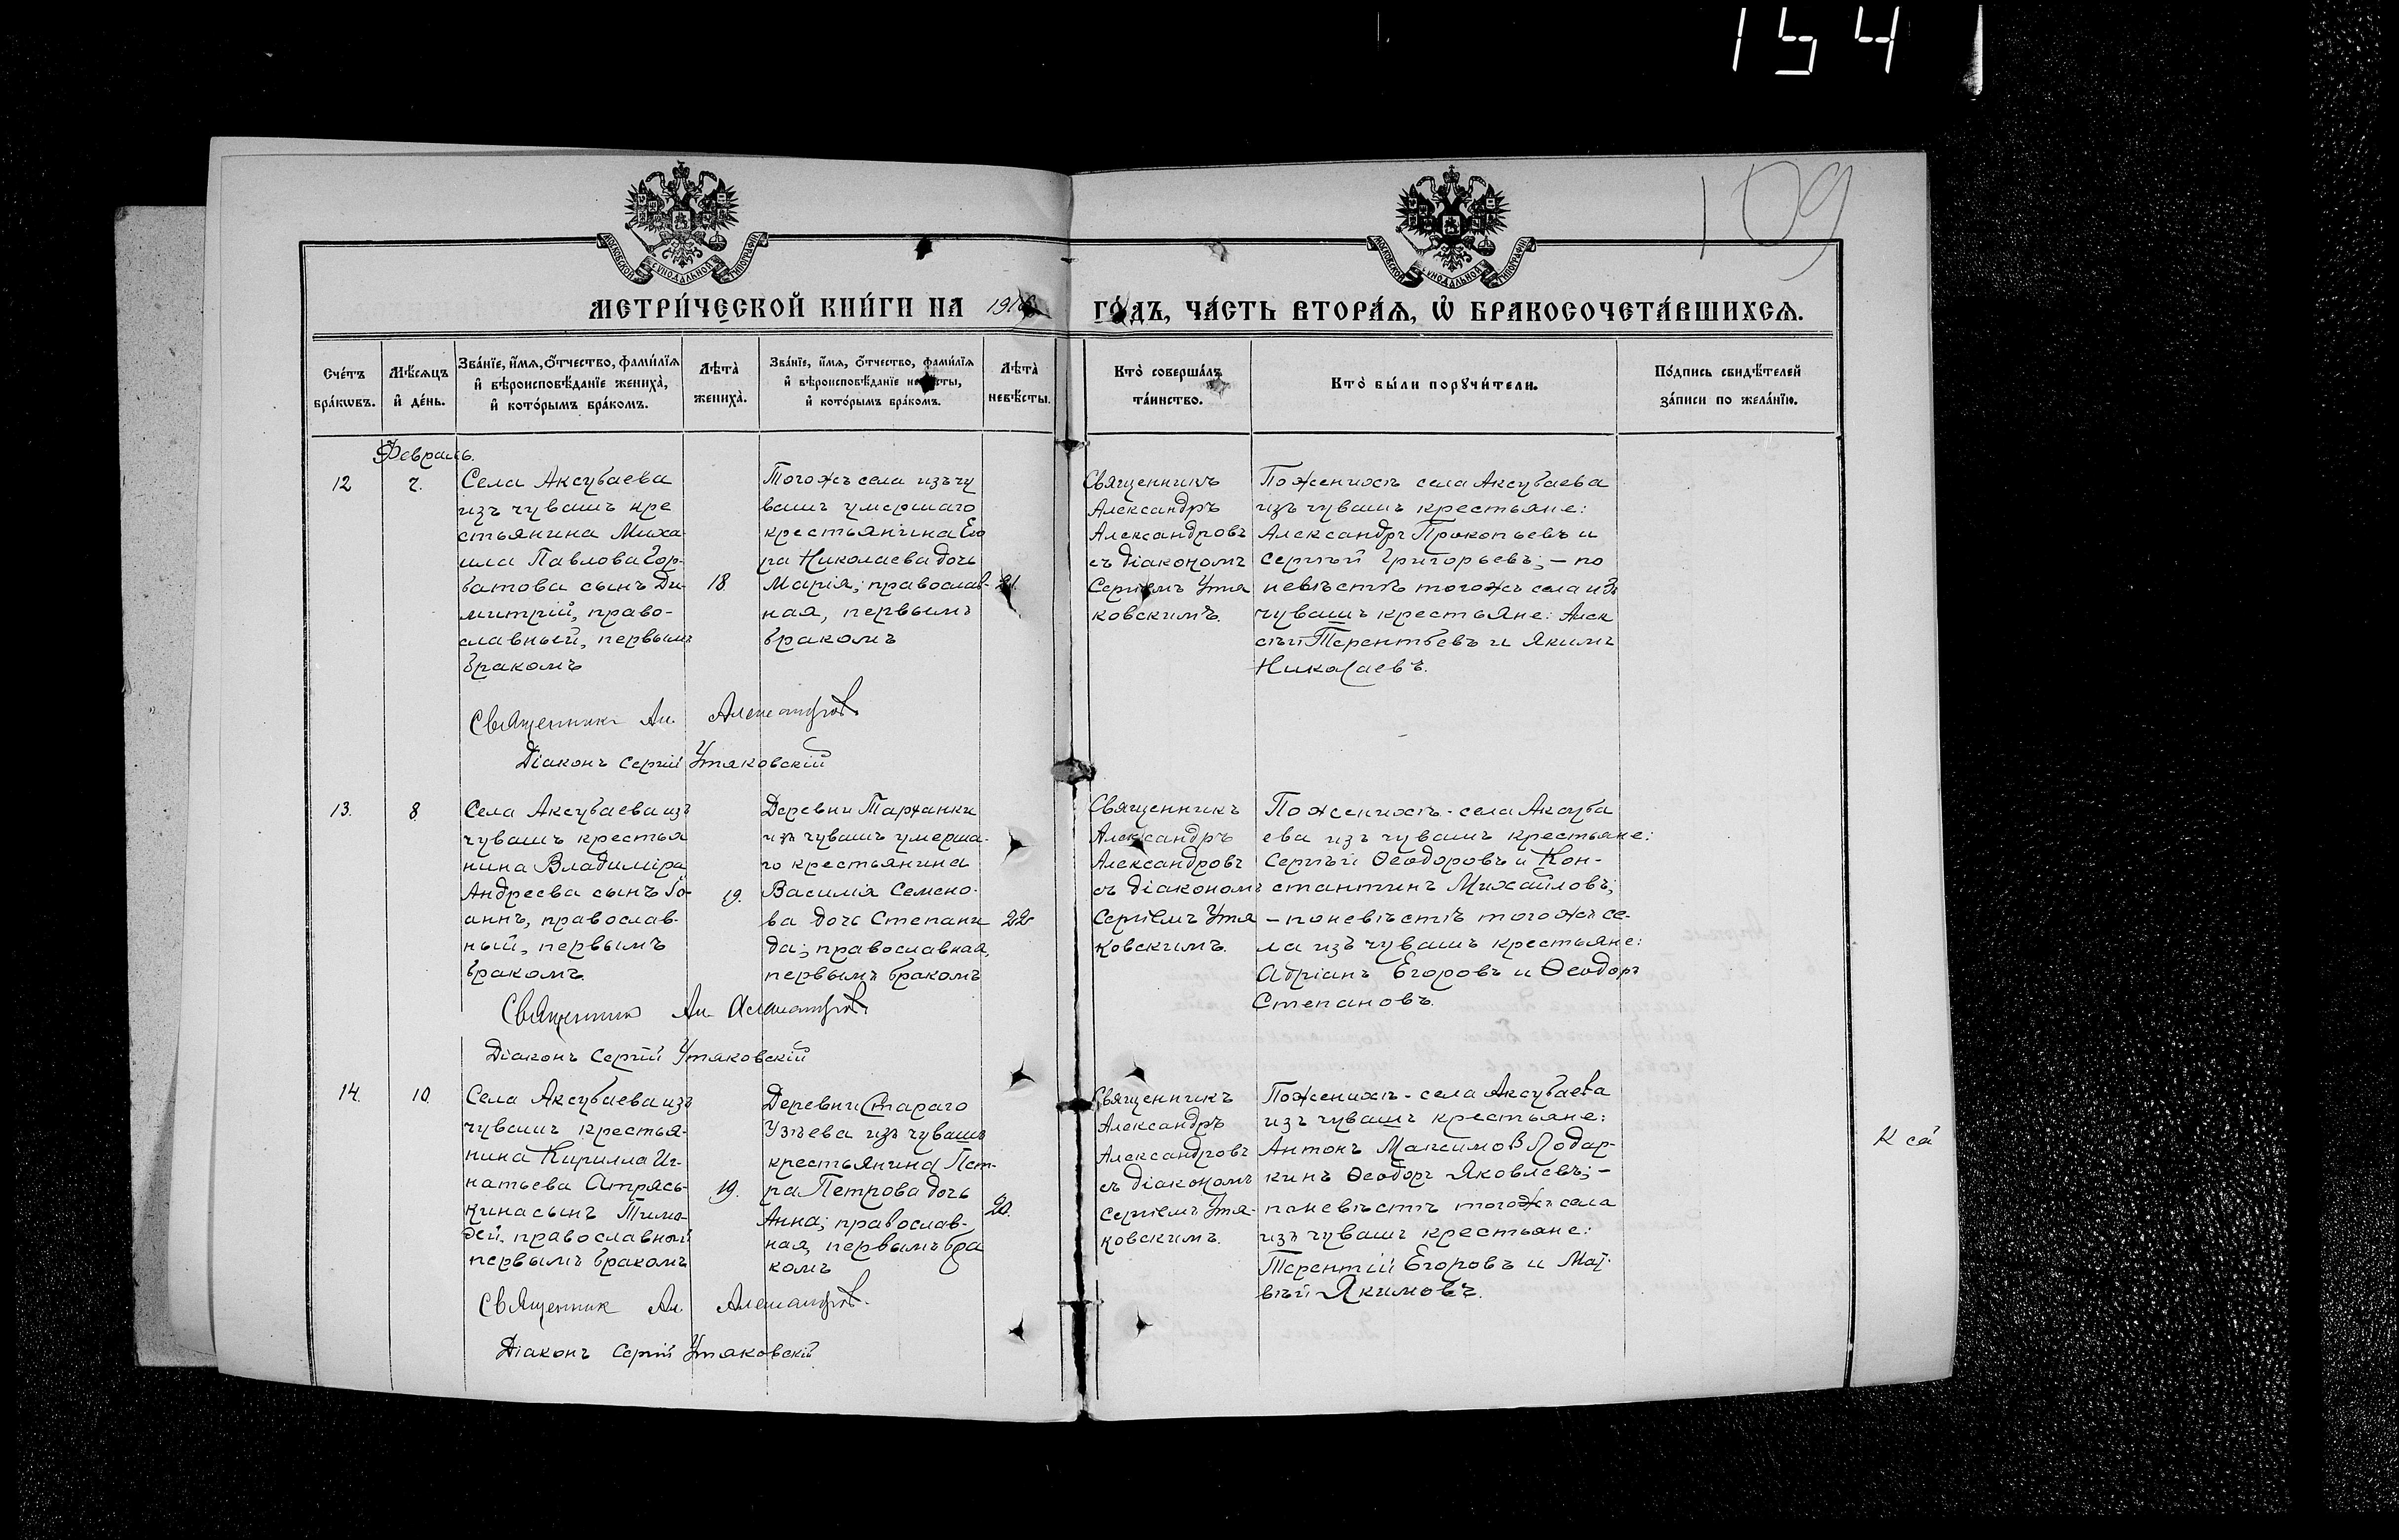 154
109
МОСКОВСКОЙ СУНОДАЛЬНОЙ ТИПОГРАФІИ
МОСКОВСКОЙ СУНОДАЛЬНОЙ ТИПОГРАФІИ
МЕТРИ́ЧЕСКОЙ КНИ́ГИ НА
ГО́ДЪ, ЧА́СТЬ ВТОРА́Ѧ, Ѡ҆ БРАКОСОЧЕТА́ВШИХСѦ.
Сче́тъ бра́кѡвъ.
Мѣ́сѧцъ и҆ де́нь.
Зва́нїе, и҆́мѧ, ѻ҆́тчество, фами́лїѧ
и҆ вѣроисповѣ́данїе жениха̀,
и҆ кото́рымъ бра́комъ.
Лѣта̀ жениха̀.
Зва́нїе, и҆́мѧ, ѻ҆́тчество, фами́лїѧ
и҆ вѣроисповѣ́данїе невѣ́сты,
и҆ кото́рымъ бра́комъ.
Лѣта̀ невѣ́сты.
Кто̀ соверша́лъ та́инство.
Кто̀ бы́ли порꙋчи́тели.
По́дпись свидѣ́телей за́писи по жела́нїю.
Февраль.
12
7.
Села Аксубаева
изъ чувашъ кре
стьянина Миха
ила Павлова Гор-
батова сынъ Ди-
митрій, право-
славный, первымъ
бракомъ
18.
Тогожъ села изъ чу
вашъ умершаго
крестьянина Его
ра Николаева дочь
Марія; православ-
ная, первымъ
бракомъ
21.
Священникъ
Александръ
Александровъ
съ діакономъ
Сергіемъ Утя
ковскимъ.
По женихѣ села Аксубаева
изъ чувашъ крестьяне:
Александръ Прокопьевъ и
Сергѣй Григорьевъ; – по
невѣстѣ тогожъ села изъ
чувашъ крестьяне: Алек
сѣй Терентьевъ и Якимъ
Николаевъ.
Священникъ Ал. Александровъ
Діаконъ Сергій Утяковскій
13.
8
Села Аксубаева изъ
чувашъ крестья
нина Владиміра
Андреева сынъ Іо-
аннъ, православ-
ный, первымъ
бракомъ.
19.
Деревни Таржанки
изъ чувашъ умерша-
го крестьянина
Василія Семено-
ва дочь Степани
да; православная,
первымъ бракомъ
22
Священникъ
Александръ
Александровъ
съ діакономъ
Сергіемъ Утя
ковскимъ.
По женихѣ - села Аксуба
ева изъ чувашъ крестьяне:
Сергѣй Ѳеодоровъ и Кон-
стантинъ Михайловъ;
– по невѣстѣ тогожъ се-
ла изъ чувашъ крестьяне:
Адріанъ Егоровъ и Ѳеодоръ
Степановъ.
Священникъ Ал. Александровъ
Діаконъ Сергій Утяковскій
14.
10.
Села Аксубаева изъ
чувашъ крестья-
нина Кирилла Иг-
натьева Атрясь-
кина сынъ Тимо-
фей, православный
первымъ бракомъ
19.
Деревни Стараго
Узѣева изъ чувашъ
крестьянина Пет-
ра Петрова дочь
Анна; православ-
ная, первымъ бра
комъ
20.
Священникъ
Александръ
Александровъ
съ діакономъ
Сергіемъ Утя-
ковскимъ.
По женихѣ - села Аксубаева
изъ чувашъ крестьяне:
Антонъ Максимов Лодар-
кинъ Ѳеодоръ Яковлевъ; –
по невѣстѣ тогожъ села
изъ чувашъ крестьяне:
Терентій Егоровъ и Мат-
вѣй Якимовъ.
Священник Ал. Александровъ.
Діаконъ Сергій Утяковскій